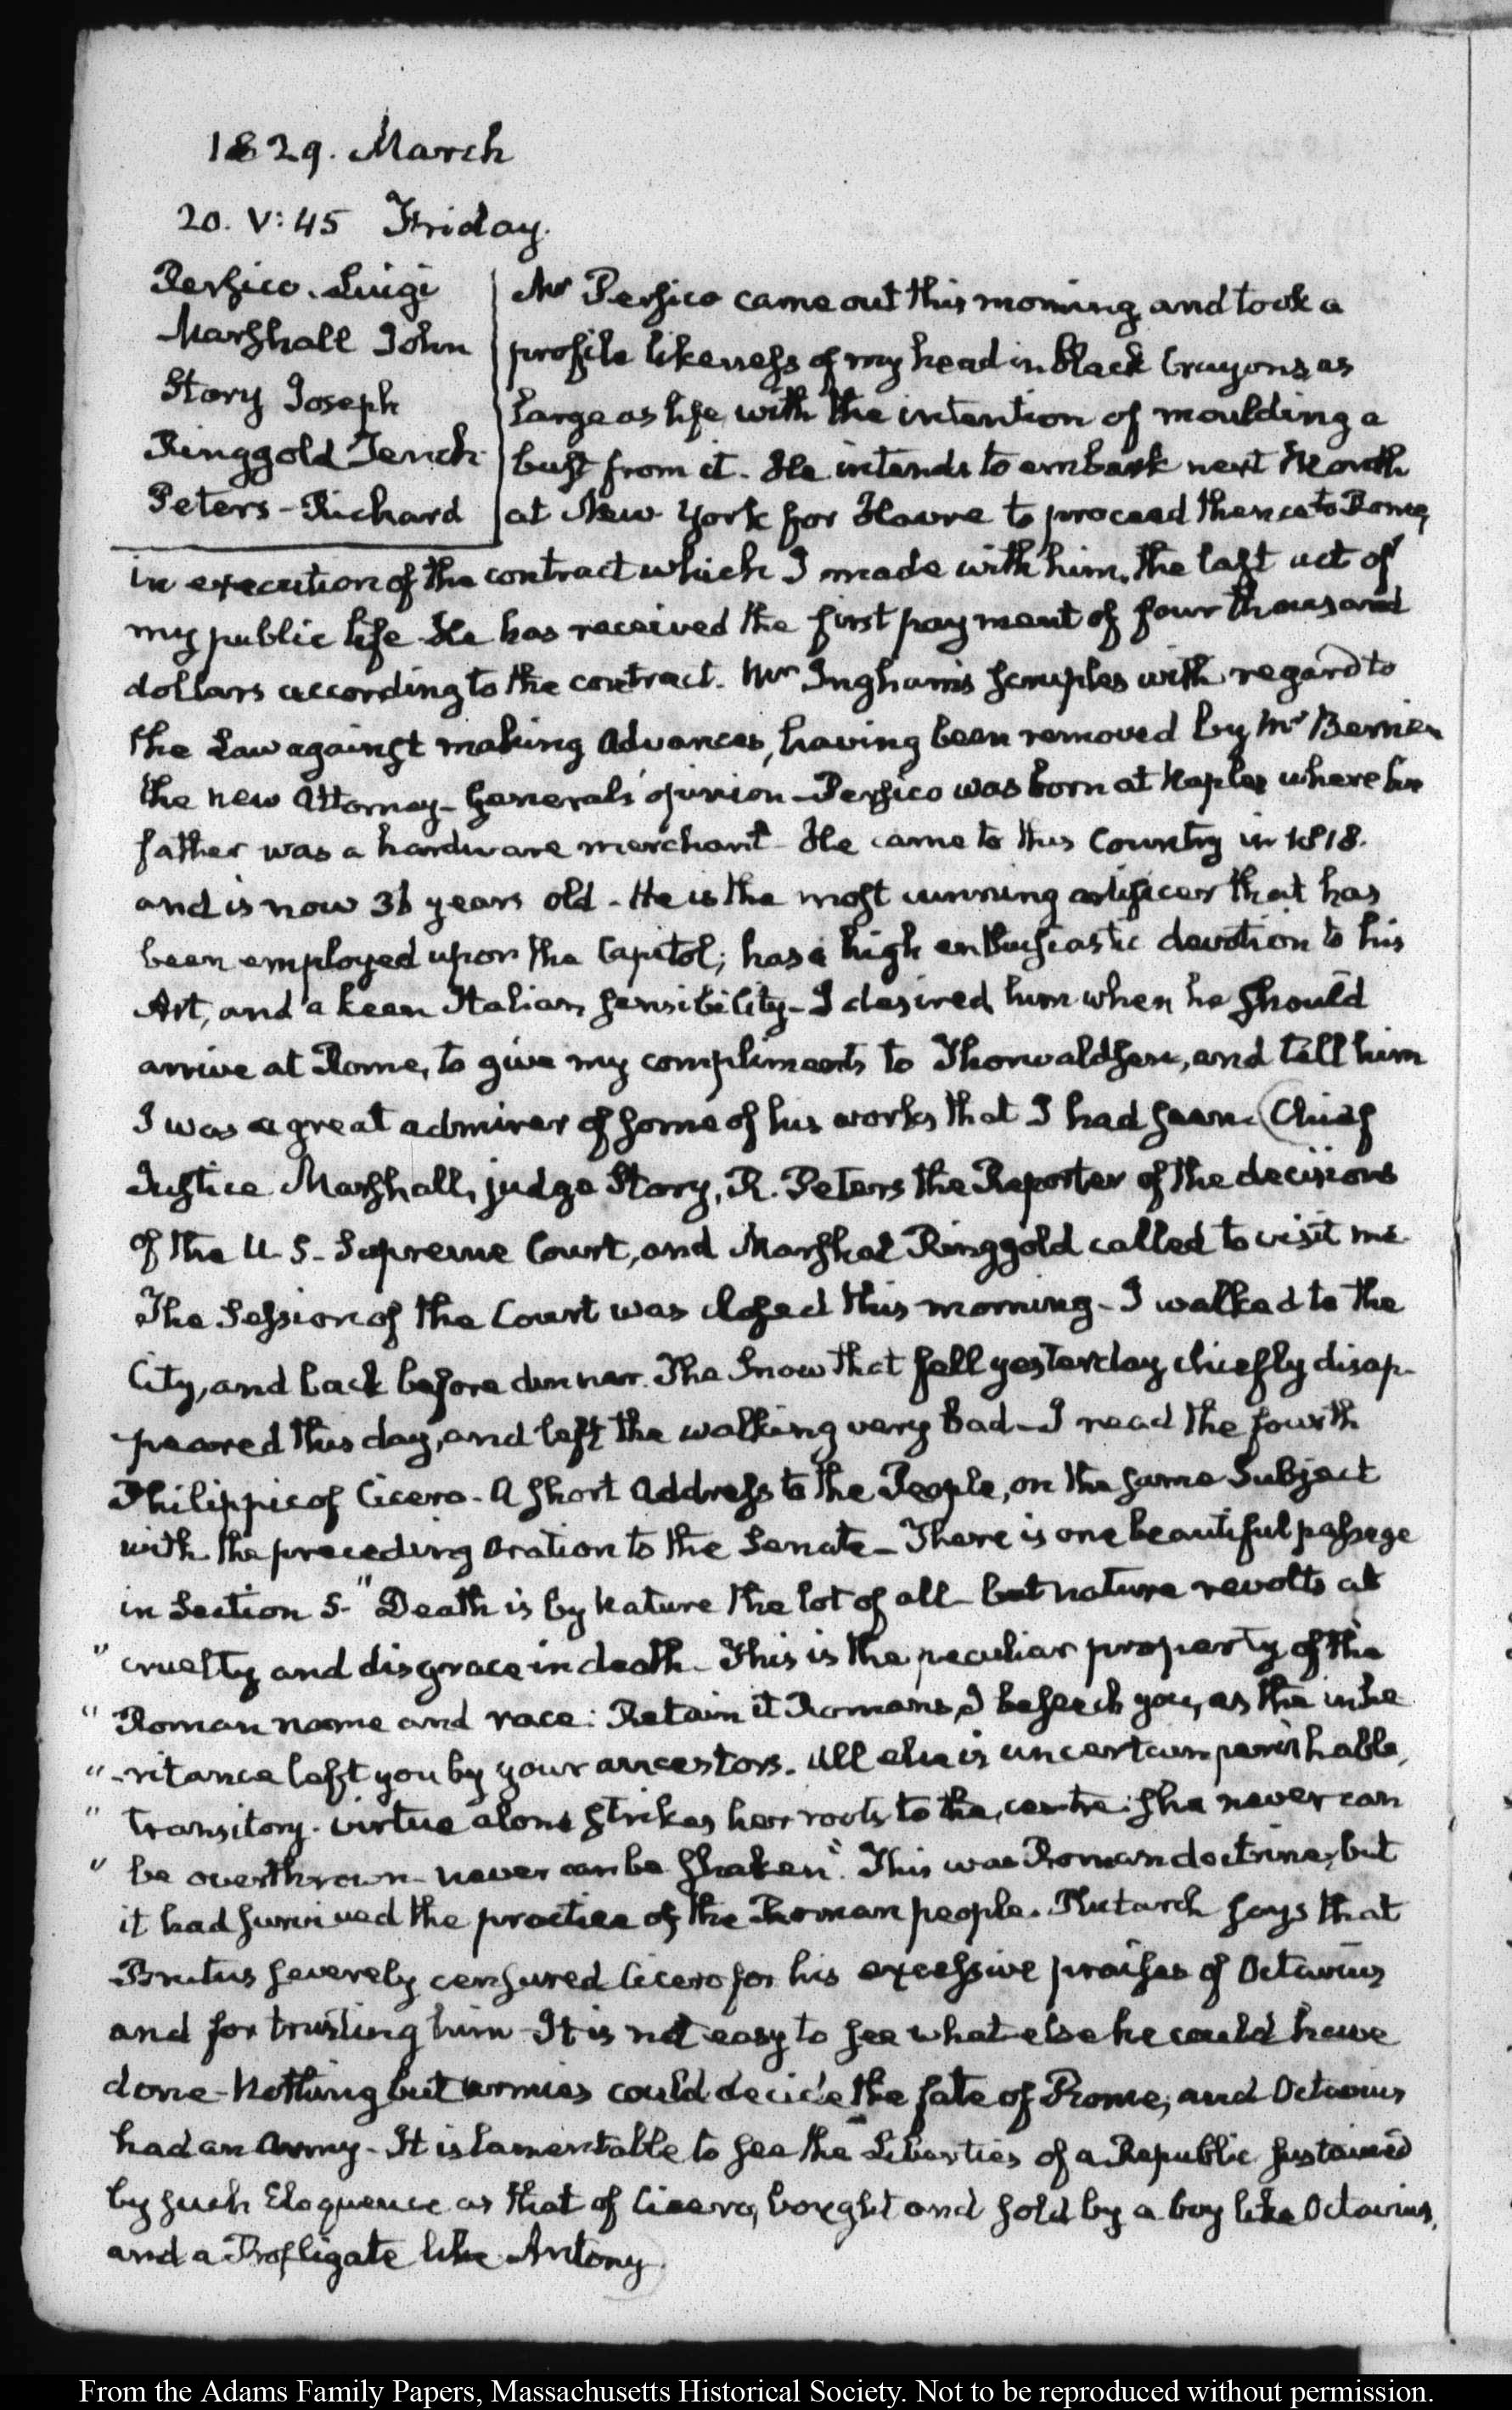 1829. March
20. V:45 Friday.
Persico. Luigi
Marshall John
Story Joseph
Ringgold Tench
Peters - Richard
Mr Persico came out this morning and took a
profile likeness of my head in black Crayons, as
large as life, with the intention of moulding a
bust from it. He intends to embark next Month
at New York for Havre to proceed thence to Rome,
in execution of the contract which I made with him, the last act of
my public life. He has received the first payment of four thousand
dollars according to the contract. Mr Ingham's scruples with regard to
the Law against making Advances, having been removed by Mr Berrien
the new Attorney-General's opinion - Persico was born at Naples where his
father was a hardware merchant - He came to this Country in 1818.
and is now years old - He is the most cunning artificer that has
been employed upon the Capitol; has a high enthusiastic devotion to his
Art, and a keen Italian sensibility - I desired him when he should
arrive at Rome, to give my compliments to Thorwaldsen, and tell him
I was a great admirer of some of his works that I had seen. Chief
Justice Marshall, judge Story, R. Peters the Reporter of the decisions
of the U.S. Supreme Court, and Marshal Ringgold called to visit me.
The Session of the Court was closed this morning - I walked to the
City, and back before dinner. The Snow that fell yesterday chiefly disap-
-peared this day, and left the walking very bad - I read the fourth
Philippic of Cicero - A short Address to the People, on the same Subject
with the preceding Oration to the Senate - There is one beautiful passage
in Section 5. "Death is by Nature the lot of all - but nature revolts at
" cruelty and disgrace in death - This is the peculiar property of the
" Roman name and race: Retain it Romans, I beseech you, as the inhe
" -ritance left you by your ancestors. All else is uncertain, perishable,
" transitory. virtue alone strikes her roots to the centre: she never can
" be overthrown - never can be shaken". This was Roman doctrine, but
it had survived the practice of the Roman people. Plutarch says that
Brutus severely censured Cicero for his excessive praises of Octavius
and for trusting him - It is not easy to see what else he could have
done - Nothing but armies could decide the fate of Rome, and Octavius
had an Army - It is lamentable to see the Liberties of a Republic sustained
by such Eloquence as that of Cicero, bought and sold by a boy like Octavius,
and a Profligate like Antony.
From the Adams Family Papers, Massachusetts Historical Society. Not to be reproduced without permission.